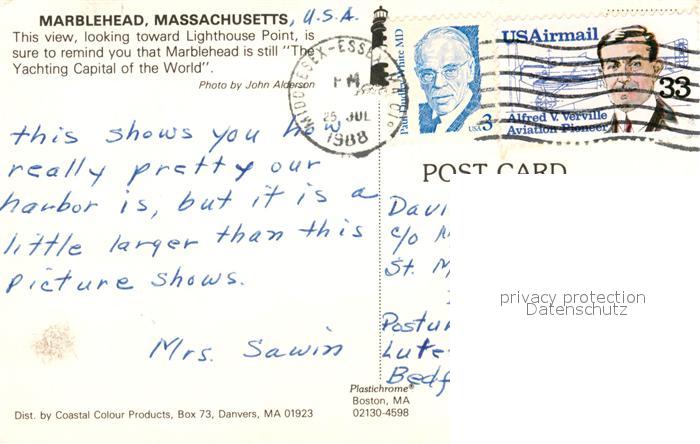 MARBLEHEAD, MASSACHUSETTS, U.S.A.
This view, looking toward Lighthouse Point, is
sure to remind you that Marblehead is still "The
Yachting Capital of the World".
Photo by John Alderson
MIDDLESEX-ESSEX
PM
25 JUL
1988
Paul Dudley White MD
USA 3
USAirmail
33
Alfred V. Verville
Aviation Pioneer
this shows you how
really pretty our
harbor is, but it is a
little larger than this
picture shows.
Mrs. Sawin
POST CARD
Davi
c/o
St. M
Postu
Lute
Bedf
privacy protection
Datenschutz
Plastichrome®
Boston, MA
02130-4598
Dist. by Coastal Colour Products, Box 73, Danvers, MA 01923